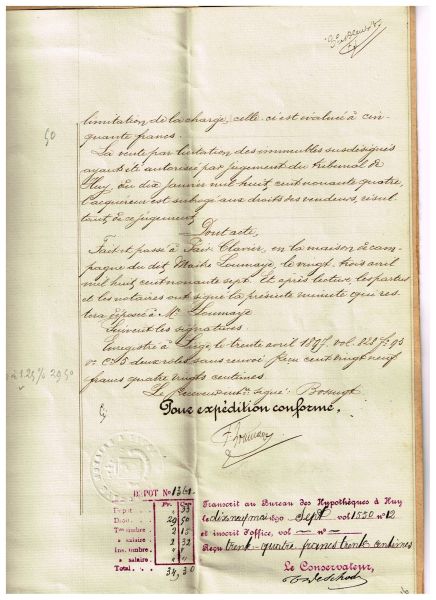 limitation de la charge, celle-ci est évaluée à cin-
quante francs.
50
La vente par licitation des immeubles susdésignés
ayant été autorisée par jugement du tribunal de
Huy, du dix janvier mil huit cent nonante quatre,
l'acquéreur est subrogé aux droits des vendeurs, résul-
tant de ce jugement.
Dont acte,
Fait et passé à Clavier, en la maison de cam-
pagne du dit Maître Loumaye, le vingt trois avril
mil huit cent nonante sept. Et après lecture, les parties
et les notaires ont signé la présente minute qui res-
tera déposée à Me Loumaye
Suivent les signatures
Enregistré à le trente avril 1897. vol. 828 fo 93
deux rôles sans renvoi Reçu cent vingt neuf
francs quatre vingts centimes.
Le Receveur signé:
Pour expédition conforme,
DÉPOT No 1361
Fr. Ces
Dépôt . 33
Droit. . 29 50
Tre timbre . 2 15
» salaire . 2 32
Ins. timbre. » »
» salaire . » »
Total. . 34,30
Transcrit au Bureau des Hypothèques à Huy
le dix neuf mai 1890 Sept vol 1550 no 12
et inscrit d'office, vol — no —
Reçu trente-quatre francs trente centimes
Le Conservateur,